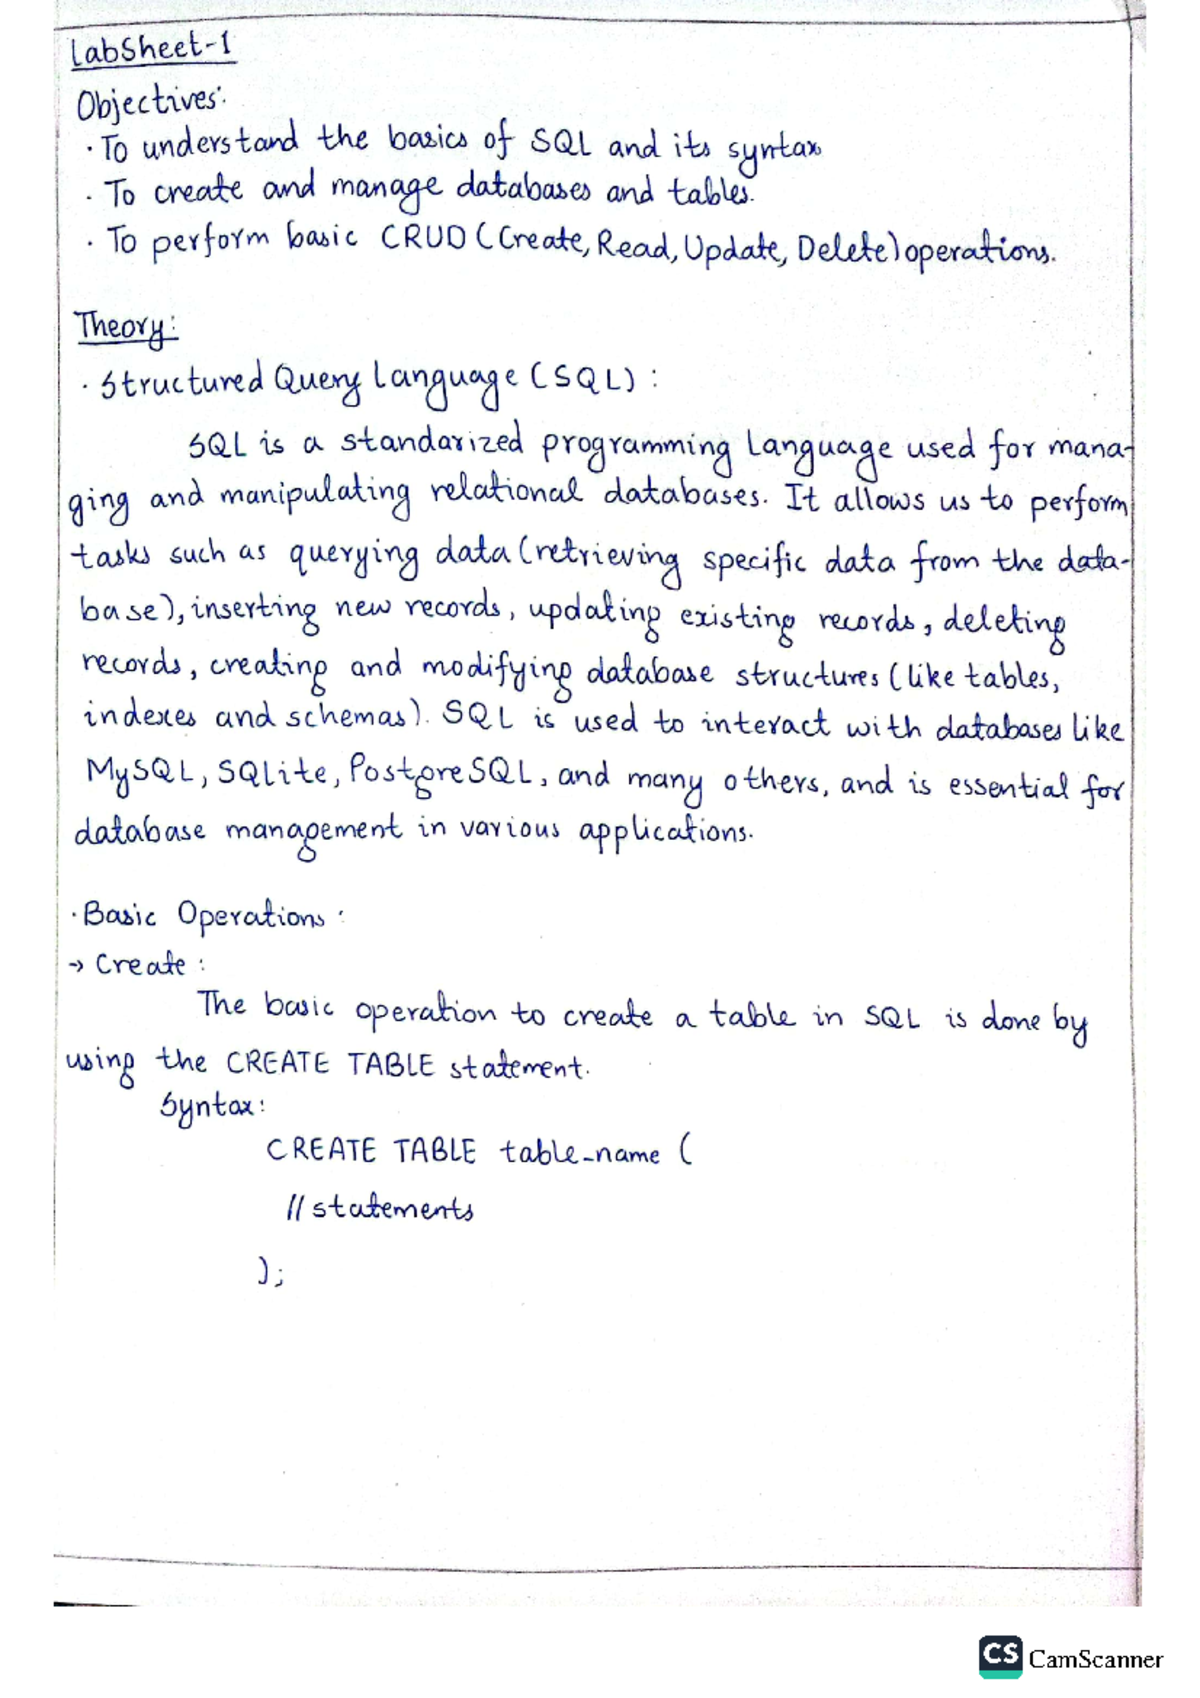 LabSheet-1
Objectives:
· To understand the basics of SQL and its syntax
· To create and manage databases and tables.
· To perform basic CRUD (Create, Read, Update, Delete) operations.
Theory:
· Structured Query Language (SQL) :
SQL is a standarized programming language used for mana-
ging and manipulating relational databases. It allows us to perform
tasks such as querying data (retrieving specific data from the data-
base), inserting new records, updating existing records, deleting
records, creating and modifying database structures (like tables,
indexes and schemas). SQL is used to interact with databases like
MySQL, SQlite, PostgreSQL, and many others, and is essential for
database management in various applications.
· Basic Operations :
→ Create :
The basic operation to create a table in SQL is done by
using the CREATE TABLE statement.
Syntax:
CREATE TABLE table_name (
// statements
);
CS CamScanner